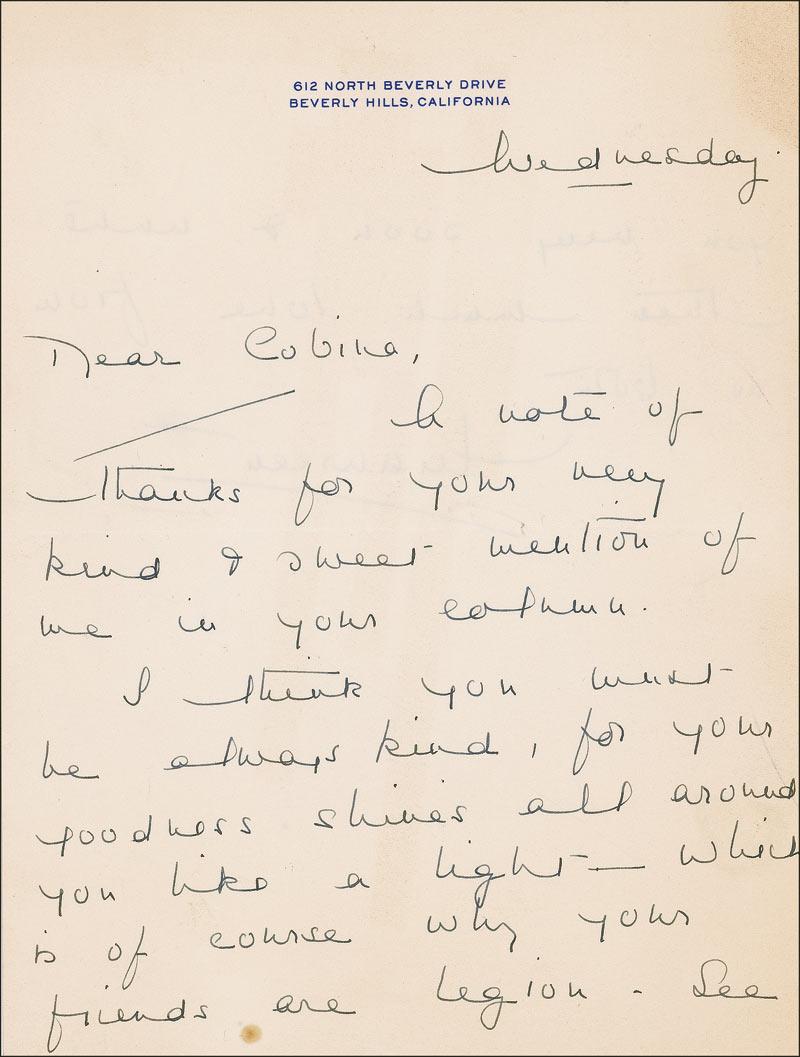 612 NORTH BEVERLY DRIVE
BEVERLY HILLS, CALIFORNIA
Wednesday.
Dear Cobina,
A note of
thanks for your very
kind & sweet mention of
me in your column.
I think you must
be always kind, for your
goodness shines all around
you like a light — which
is of course why your
friends are legion. See